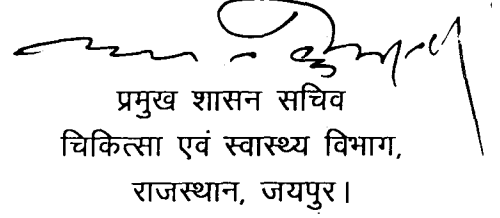 प्रमुख शासन सचिव
चिकित्सा एवं स्वास्थ्य विभाग,
राजस्थान, जयपुर।